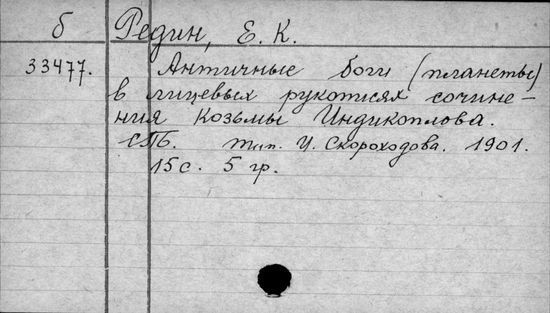 б Редин, Е. К.
33477. Античные боги (планеты)
в лицевых рукописях сочине-
ния Козьмы Индикоплова.
СПб. Тип. И. Скороходова. 1901.
15 с. 5 гр.